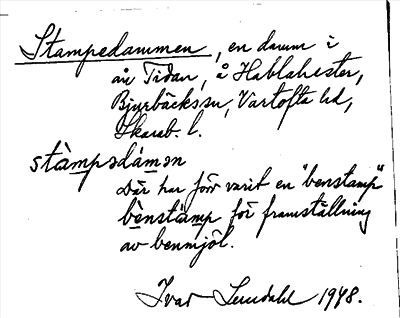 Stampedammen, en damm i
ån Tidan, å Hablahester,
Bjurbäcks sn, Vartofta hd,
Skarab. l.
stàmpədám̀ən
Där har förr varit en "benstamp"
bènstàmp för framställning
av benmjöl.
Ivar Lundahl 1948.